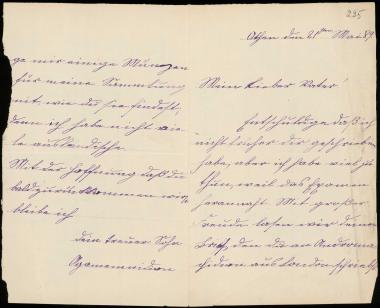 235
Athen den 21ten Mai 89
Mein lieber Vater!
Entschuldige daß ich
nicht früher dir geschrieben
habe, aber ich habe viel zu
thun, weil das Examen
herannaht. Mit großer
Freude lasen wir deinen
Brief, den du an Androma
chi aus London schriebst
ge mir einige Münzen
für meine Sammlung
mit, wie du sie findest,
denn ich habe nicht vie
le ausländische
Mit der Hoffnung daß du
bald zurückkommen wirst
bleibe ich
dein treuer Sohn
Agamemnon